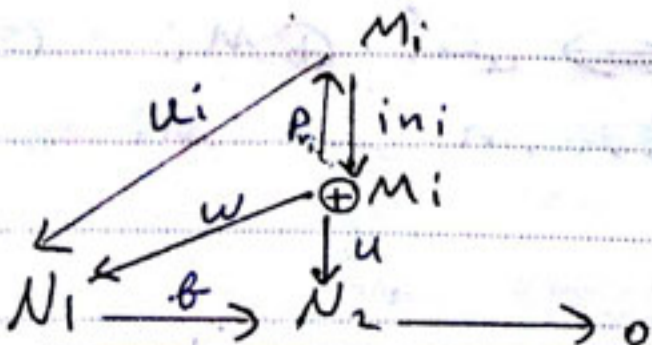 Mi
ui Pri ini
w ⊕ Mi
u
N1 b N2 0